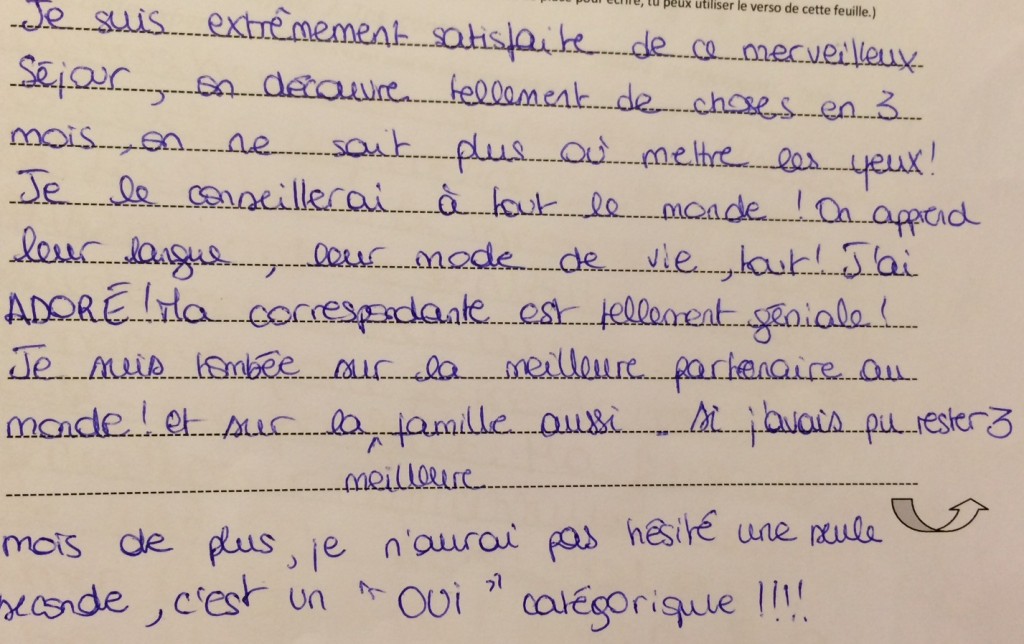 pour écrire, tu peux utiliser le verso de cette feuille.)
Je suis extrêmement satisfaite de ce merveilleux
Séjour, on découvre tellement de choses en 3
mois, on ne sait plus où mettre les yeux!
Je le conseillerai à tout le monde ! On apprend
leur langue, leur mode de vie, tout! J'ai
ADORÉ! Ma correspondante est tellement géniale!
Je suis tombée sur la meilleure partenaire au
monde! et sur la famille aussi .. si j'avais pu rester 3
meilleure
mois de plus, je n'aurai pas hésité une seule
seconde, c'est un " OUi " catégorique !!!!